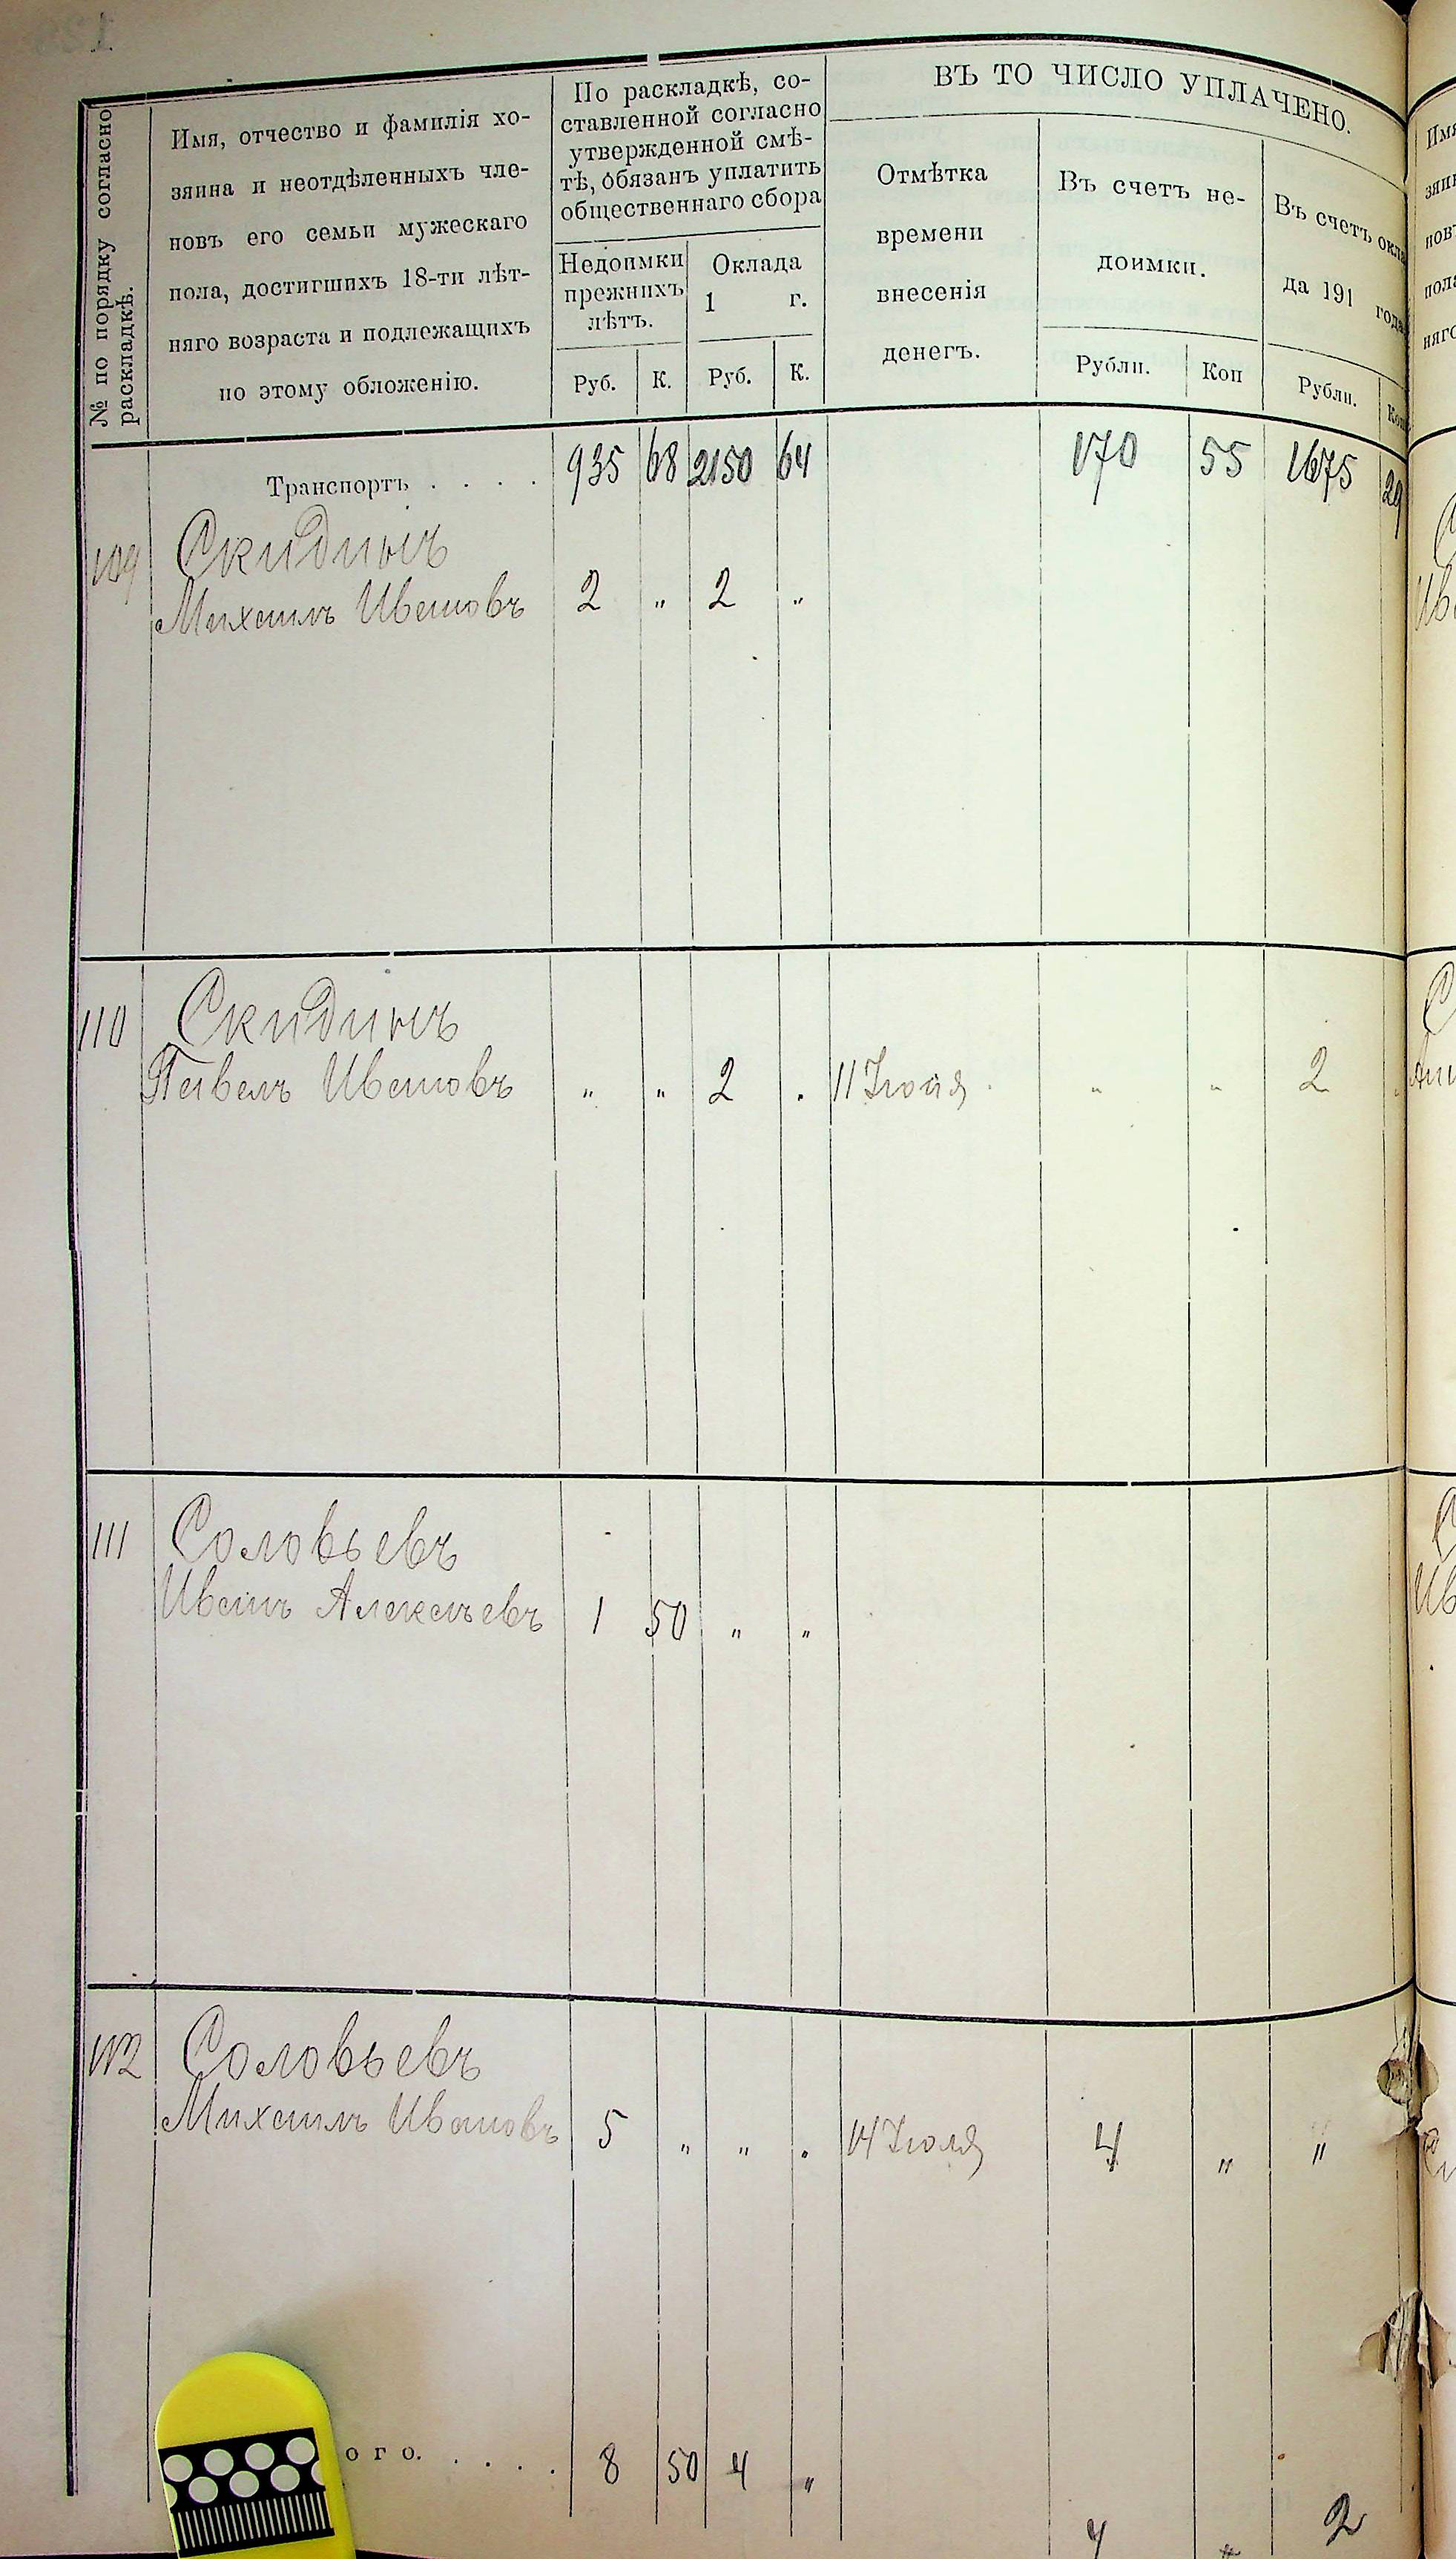 № по порядку согласно
раскладкѣ.
Имя, отчество и фамилія хо-
зяина и неотдѣленныхъ чле-
новъ его семьи мужескаго
пола, достигшихъ 18-ти лѣт-
няго возраста и подлежащихъ
по этому обложенію.
По раскладкѣ, со-
ставленной согласно
утвержденной смѣ-
тѣ, обязанъ уплатить
общественнаго сбора
Недоимки
прежнихъ
лѣтъ.
Оклада
1 г.
Руб. К. Руб. К.
ВЪ ТО ЧИСЛО УПЛАЧЕНО.
Отмѣтка
времени
внесенія
денегъ.
Въ счетъ не-
доимки.
Рубли. Коп
Въ счетъ окла
да 191 года
Рубли. Коп
Транспортъ . . . . 935 68 2150 64 170 55 1675 29
109 Скидинъ
Михаилъ Ивановъ 2 „ 2 „
110 Скидинъ
Павелъ Ивановъ „ „ 2 . 11 Іюля „ „ 2
111 Соловьевъ
Иванъ Алексѣевъ 1 50 „ „
112 Соловьевъ
Михаилъ Ивановъ 5 „ „ . 14 Іюля 4 „ „
ого. . . . . 8 50 4 „
4 „ 2